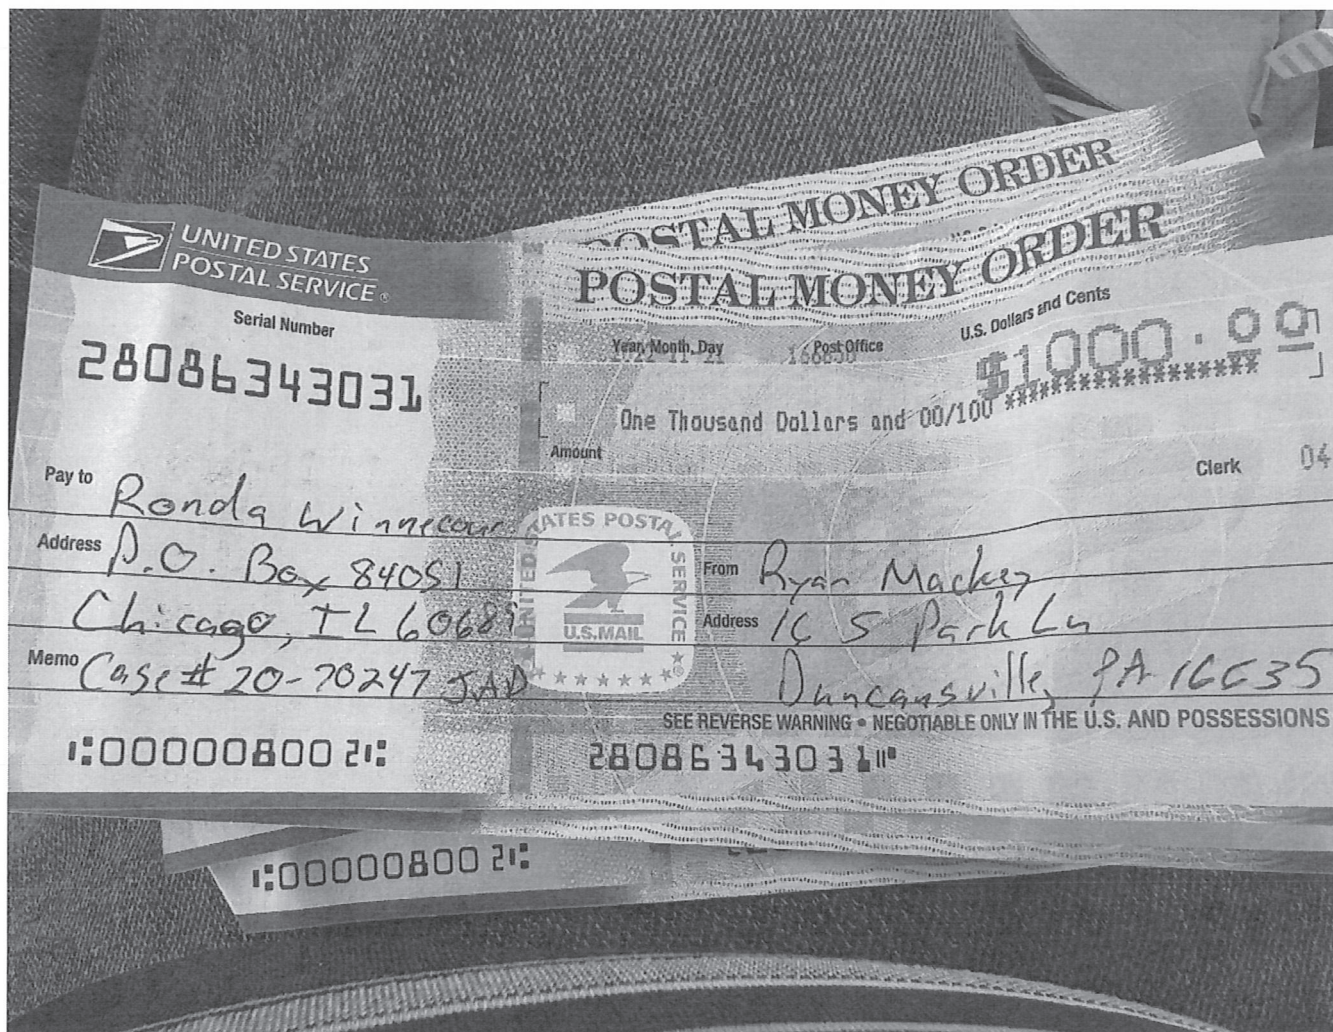 POSTAL MONEY ORDER
UNITED STATES
POSTAL SERVICE®
POSTAL MONEY ORDER
Serial Number
28086343031
Year, Month, Day
Post Office
U.S. Dollars and Cents
$1000.00
One Thousand Dollars and 00/100 ******************
Amount
Clerk 04
Pay to Ronda Winnecour
Address P.O. Box 84051
Chicago, IL
Memo Case# 20-70247 JAD
UNITED STATES POSTAL SERVICE®
U.S. MAIL
From Ryan Mackey
Address 16 S Park Ln
Duncansville, PA 16635
SEE REVERSE WARNING • NEGOTIABLE ONLY IN THE U.S. AND POSSESSIONS
⑆000008002⑆
28086343031⑈
⑆000008002⑆